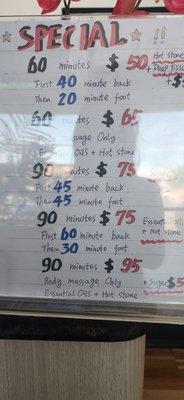 ☆ SPECIAL ☆ !!
60 minutes $ 50 Hot Stone
First 40 minute back + Deep Tissue
Then 20 minute foot + $
60 minutes $ 65
Massage Only
Essential Oils + Hot stone
90 minutes $ 75
First 45 minute back
Then 45 minute foot
90 minutes $ 75 Essential Oils
First 60 minute back + Hot stone
Then 30 minute foot
90 minutes $ 95
Body massage Only
Essential Oils + Hot Stone + $5